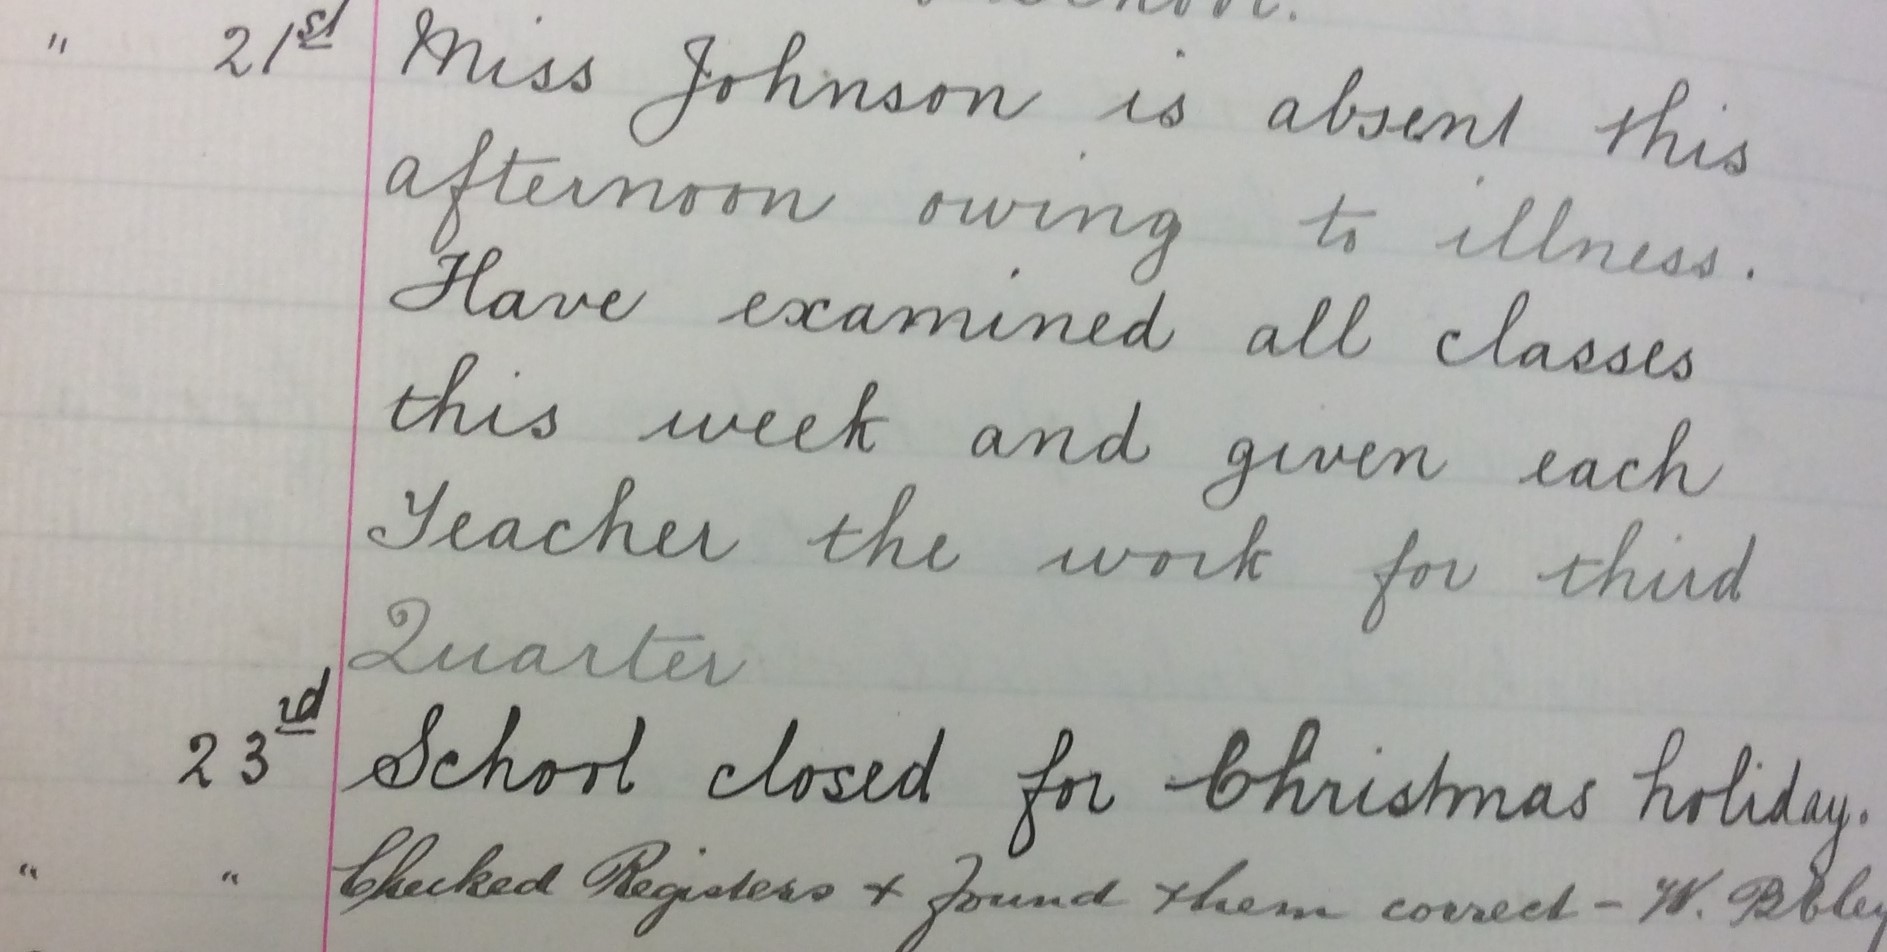 " 21st Miss Johnson is absent this
afternoon owing to illness.
Have examined all classes
this week and given each
Teacher the work for third
Quarter
23rd School closed for Christmas holiday.
" " Checked Registers + found them correct - W.